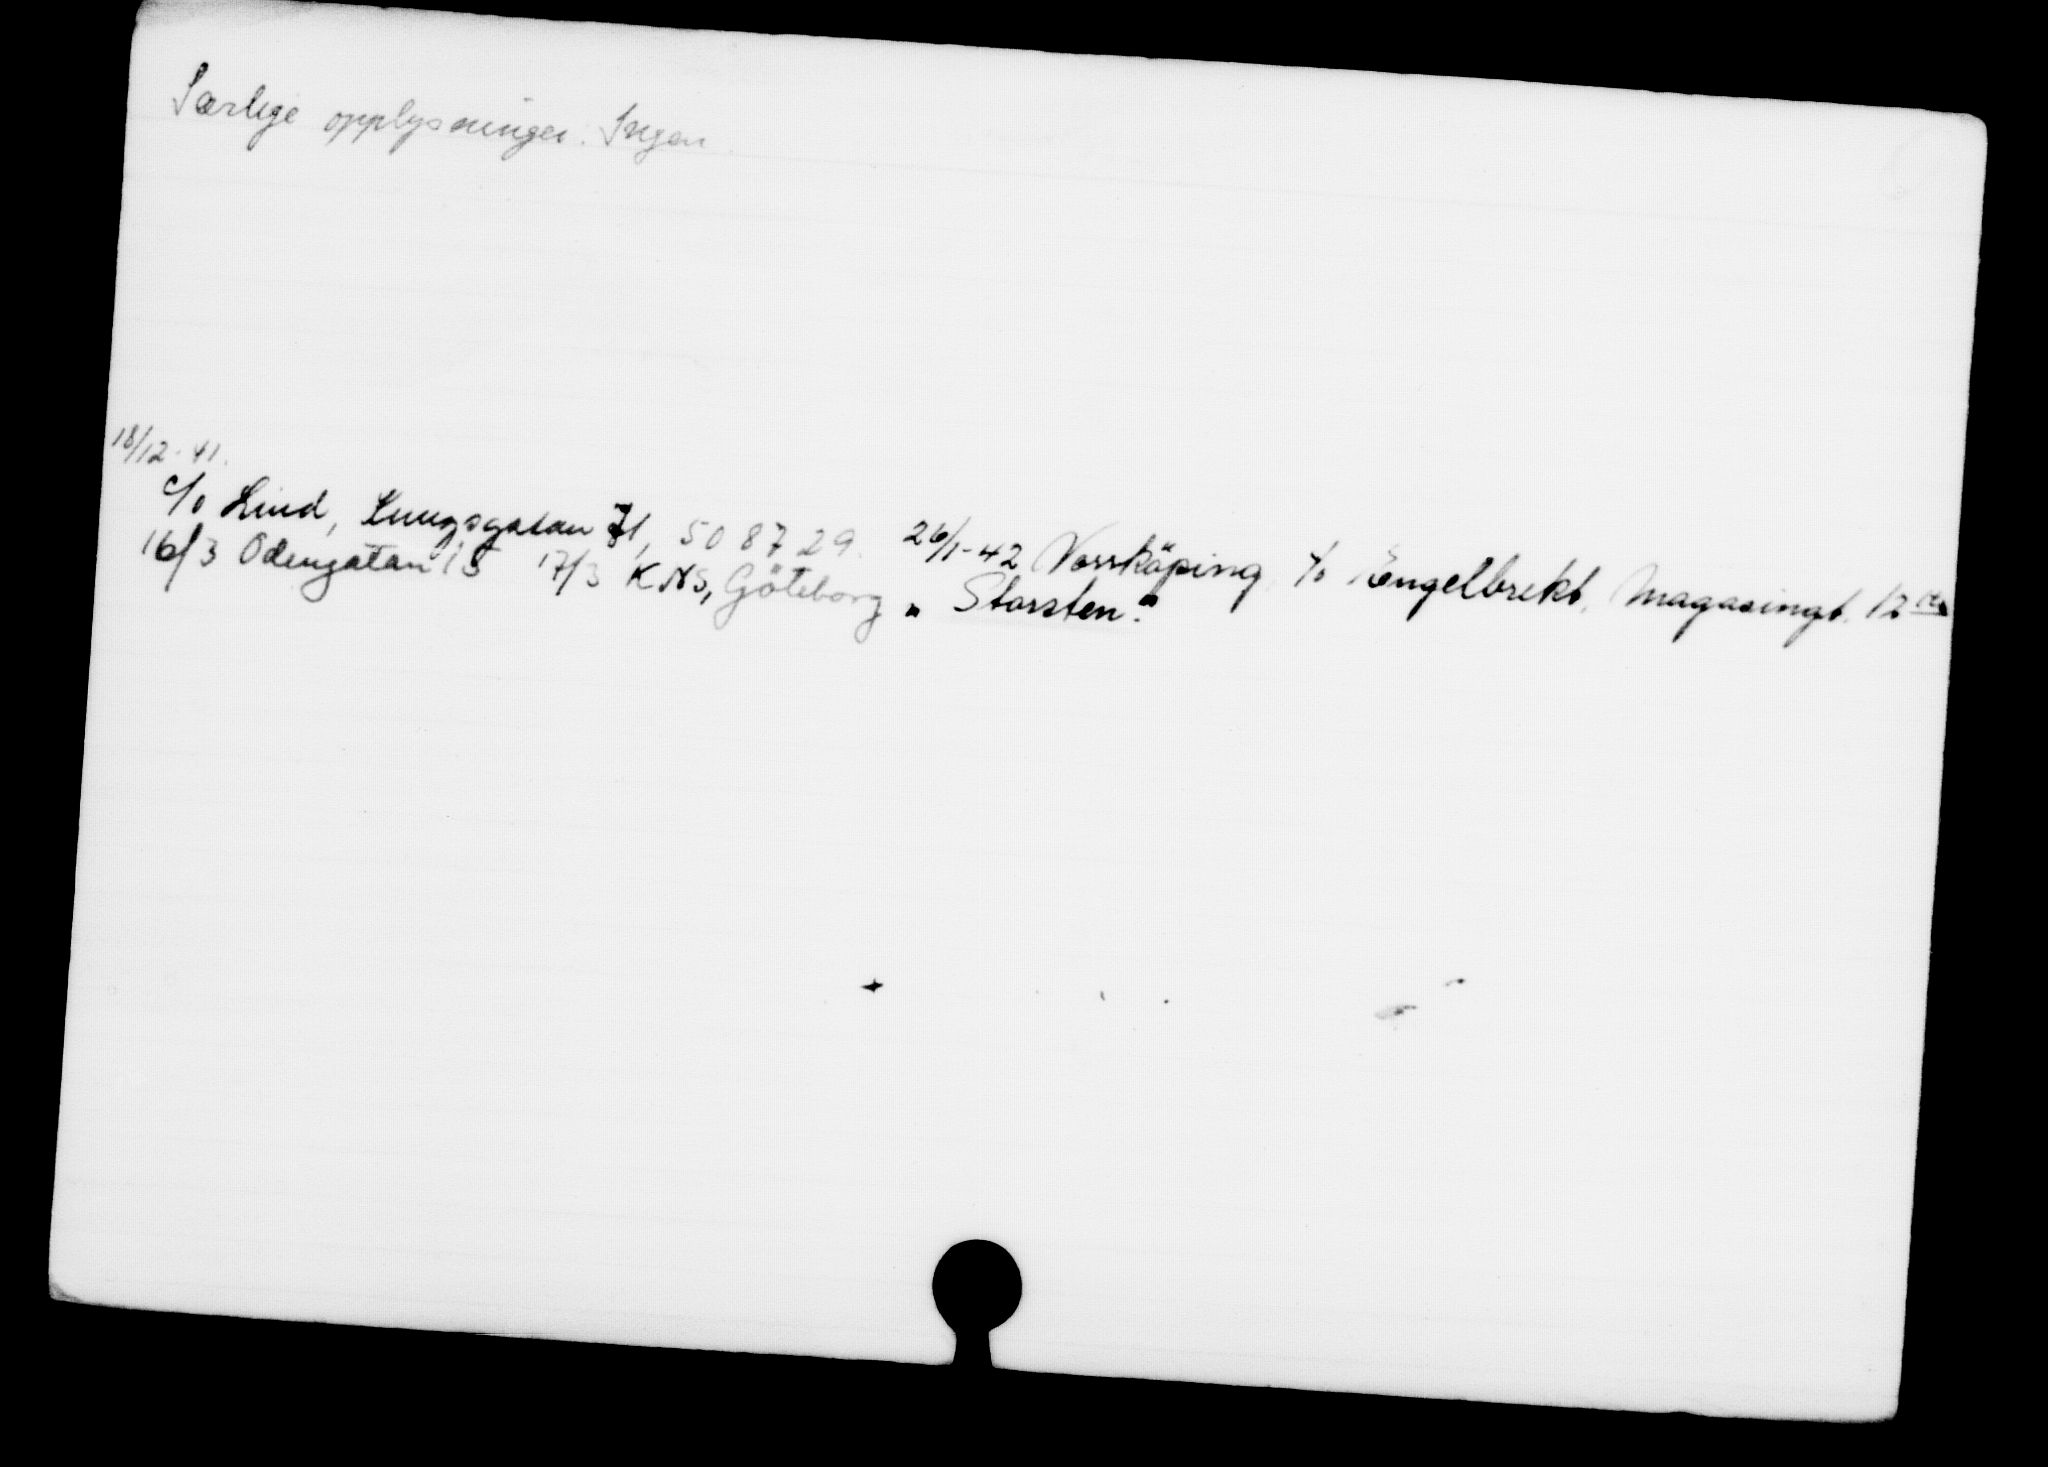 Særlige opplysninger: Ingen
18/12-41.
c/o Lind, Kungsgatan 71, 508729. 26/1-42 Norrköping, c/o Engelbrekt, Magasingt. 12
16/3 Odengatan 15 17/3 KNS, Göteborg „Storsten."